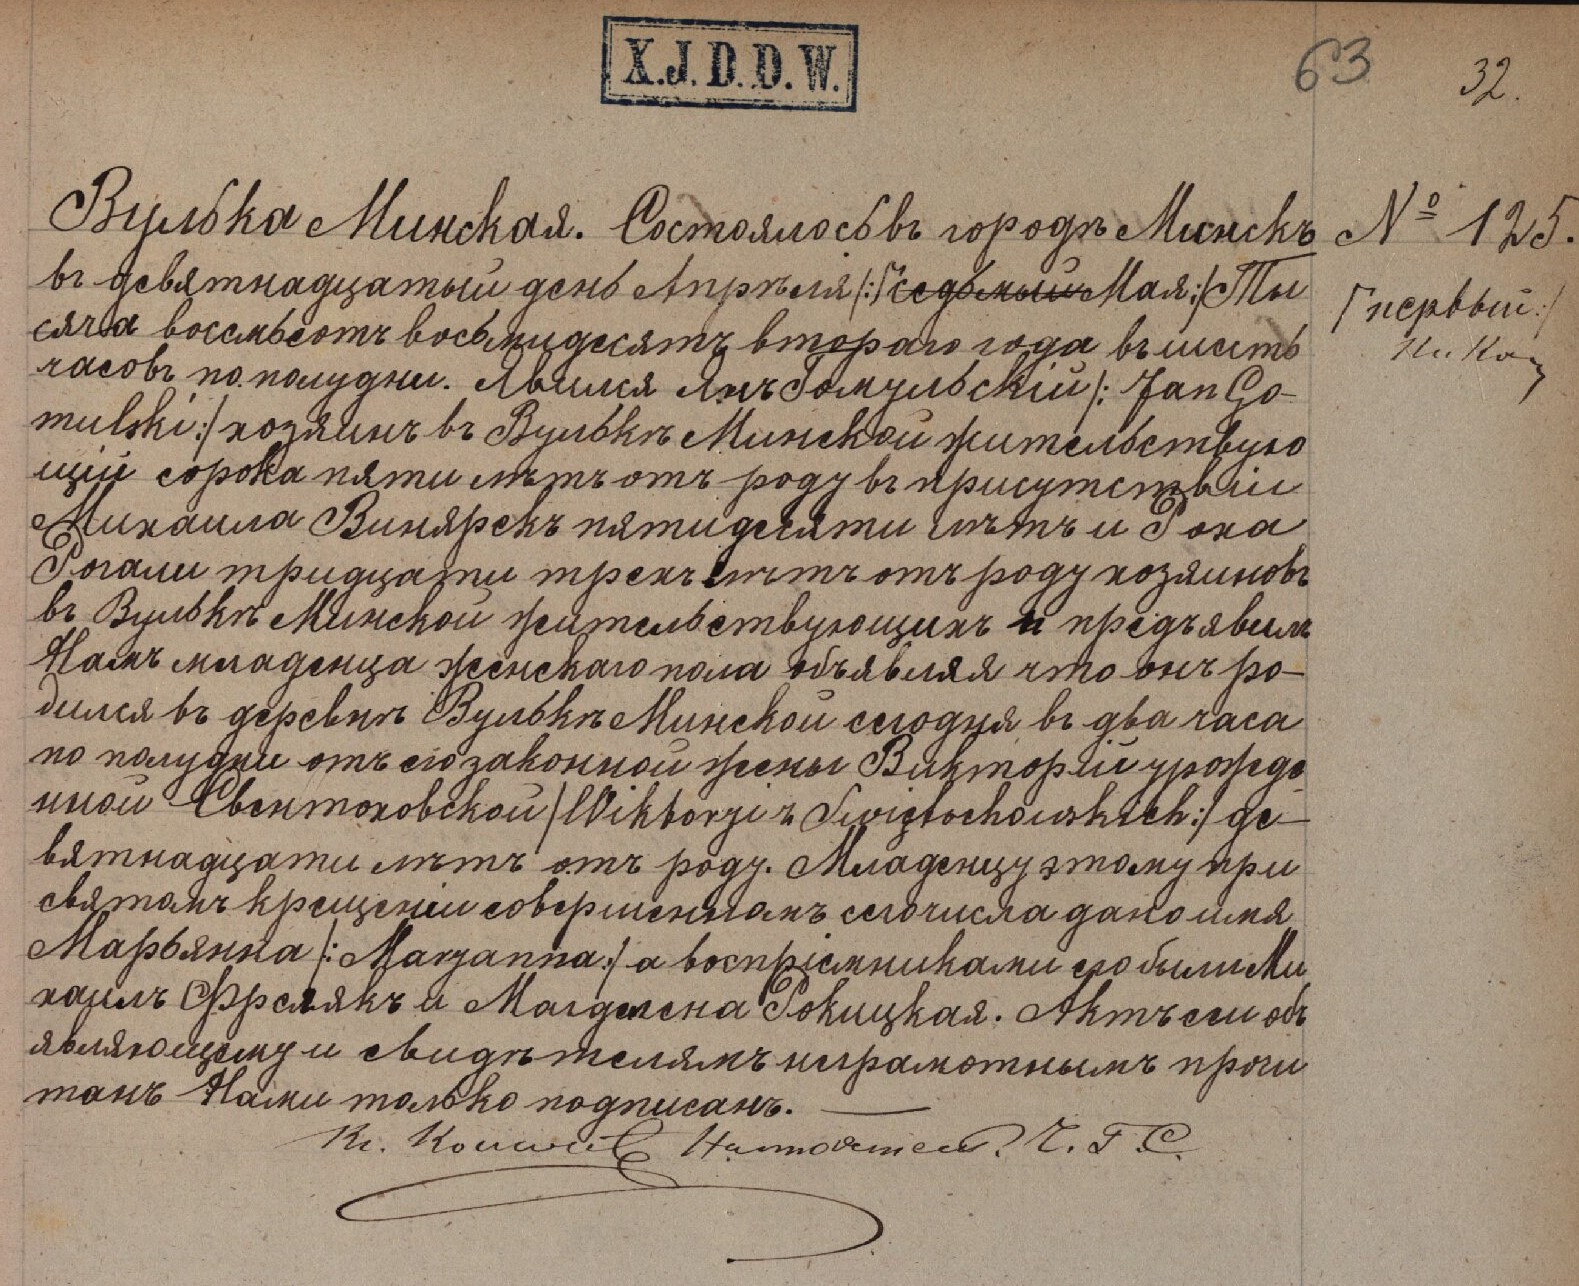 X.J.D.D.W.
63
32.
Вулька Минская. Состоялось въ городѣ Минскѣ
№ 125.
въ девятнадцатый день Апрѣля /:Г седьмый Мая:/ Ты
Г первый:/
сяча восемьсотъ восемьдесятъ втораго года въ шесть
часовъ по полудни. Явился Янъ Гомульскій /: Jan Go-
mulski:/ хозяинъ въ Вулькѣ Минской жительствую
щій сорока пяти лѣтъ отъ роду въ присутствіи
Михаила Винярекъ пятидесяти лѣтъ и Роха
Рогали тридцати трехъ лѣтъ отъ роду хозяиновъ
въ Вулькѣ Минской жительствующихъ и предъявилъ
Намъ младенца женскаго пола объявляя что онъ ро-
дился въ деревнѣ Вулькѣ Минской сегодня въ два часа
по полудни отъ его законной жены Викторіи урожде
нной Свентоховской /Wiktorzi z Święlochowskich:/ де-
вятнадцати лѣтъ отъ роду. Младенцу этому при
святомъ крещеніи совершенномъ сего числа дано имя
Марьянна /: Maryanna:/ а воспріемниками его были Ми
хаилъ Фрелякъ и Магдалена Рокицкая. Актъ сей объ
являющему и свидѣтелямъ неграмотнымъ прочи
танъ Нами только подписанъ.
Кс.